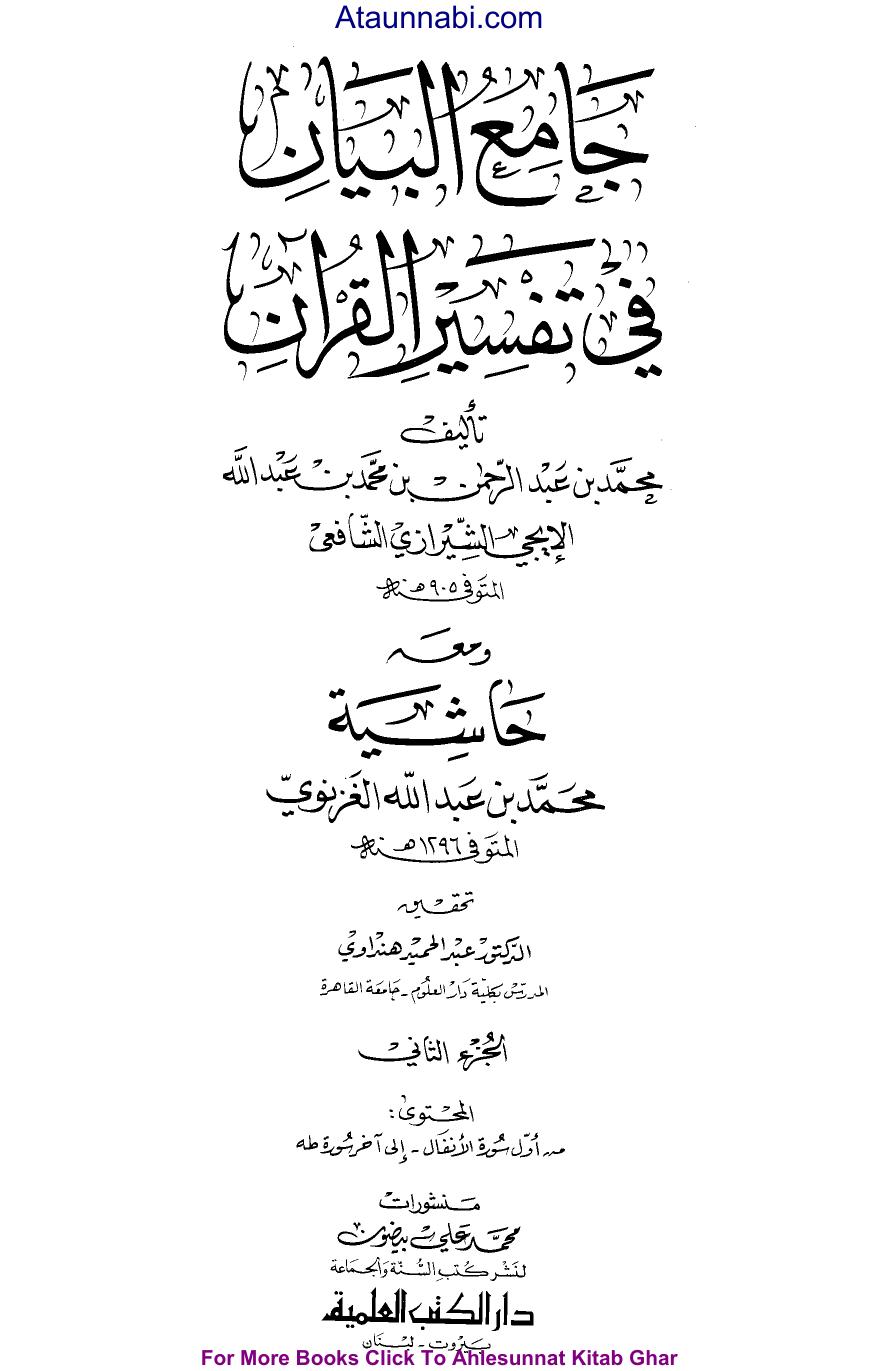 Ataunnabi.com
جَامِعُ البَيَانِ
فِي تَفْسِيرِ القُرْآنِ
تأليف
محمّد بن عَبْد الرّحمٰن بن محمَّد بن عَبْد اللَّه
الإيجي الشِّيرازي الشَّافعي
المتَوفى ٩٠٥ هـ سنة
ومعـه
حَاشِيَة
محمَّد بن عَبد اللّه الغَزنويّ
المتَوفى ١٢٩٦ هـ سنة
تحقيق
الدّكتور عبد الحميد هنداوي
المدرّس بكليّة دَار العلُوم - جَامعَة القاهرة
الجُزء الثَاني
المحتوى:
من أوّل سُورة الأنفَال - إلى آخر سُورة طه
منشورات
محمّد عَلي بيضون
لنَشْر كتبِ السُّنَّة وَالجمَاعة
دار الكتب العلمية
بَيروت - لبنَان
For More Books Click To Ahlesunnat Kitab Ghar